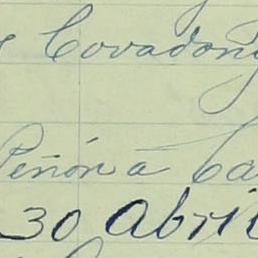 Covadong
Peñón á Ca
30 Abril